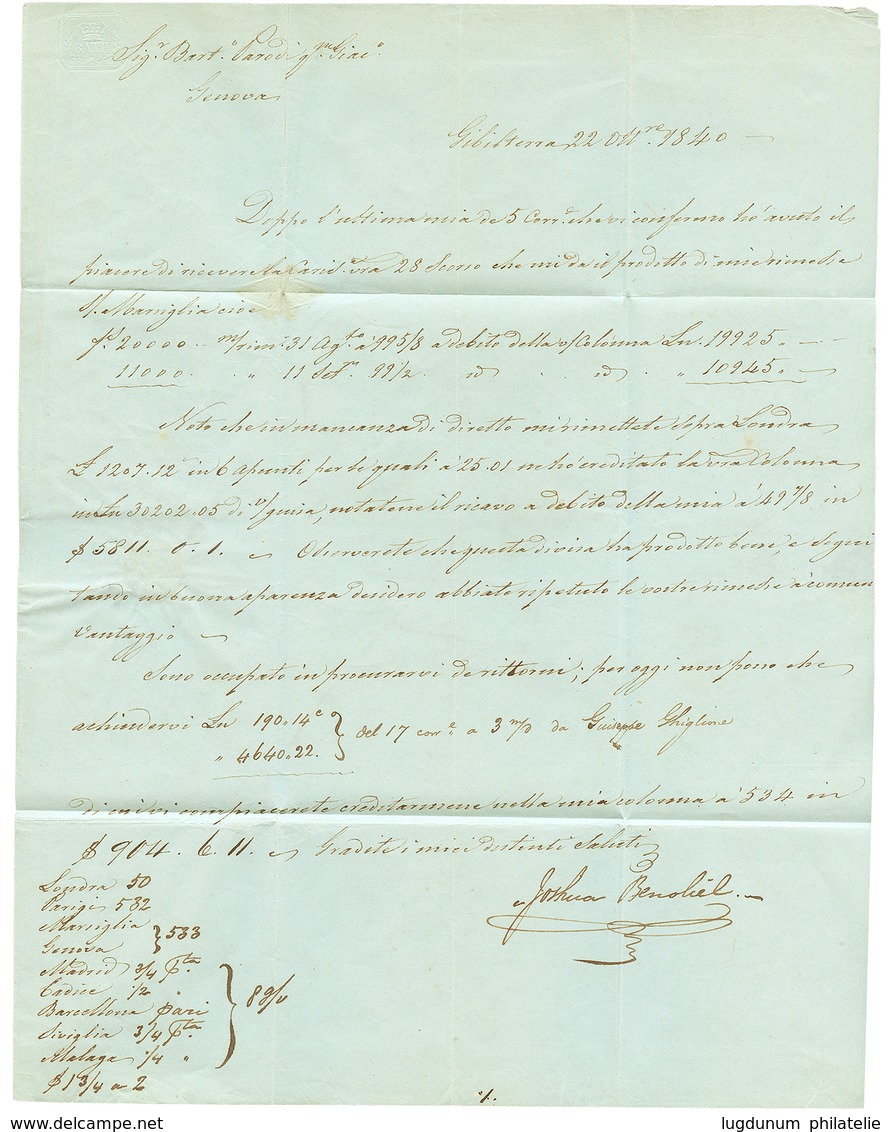 Sig.r Bart.o Parodi q.m Giac.o
Genova
Gibilterra 22 Ott.re 1840
Doppo l'ultima mia de 5 Corr.e che vi confermo hó avuto il
piacere di ricevere la Caris.a vra 28 Scorso che mi da il prodotto di mie rimesse
s/. Marsiglia cioè
f.i 20000 .. m/rim: 31 Ag.to a 99 5/8 a debito della v/ Colonna Ln. 19925 „ —
11000 „ 11 Set.e 99 1/2 id id „ 10945 „ —
Noto che in mancanza di diretto mi rimettete sopra Londra
£ 1207.12 in 6 apunti per le quali a 25.01 ne hó creditato la vra Colonna
in Ln 30202.05 di v/ guisa, notatene il ricavo a debito della mia á 49 7/8 in
$ 5811. 0. 1. Osserverete che questa divisa ha prodotto bene, e segui
tando in buona aparenza desidero abbiate ripetuto le vostre rimesse á comun
vantaggio
Sono occupato in procurarvi de rittorni; per oggi non pono che
achiudervi Ln 190.14c
„ 4640.22. } del 17 corr.e a 3 m/d da Giuseppe Ghiglione
di cui vi compiacerete creditarmene nella mia colonna á 534 in
$ 904. 6. 11. Gradite i miei distinti Saluti
Joshua Benoliél
Londra 50
Parigi 532
Marsiglia
Genova } 533
Madrid 3/4 P.ta
Cadice 1/2 „
Barcellona pari
Siviglia 3/4 P.ta
Malaga 1/4 „
} 8 g/v
$ 1 3/4 a 2
·/.
lugdunum philatelie